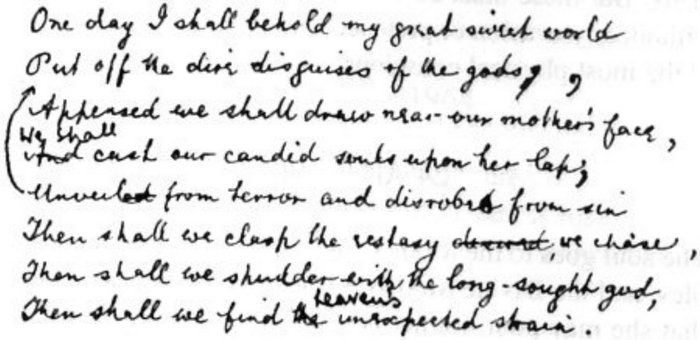 One day I shall behold my great sweet world
Put off the dire disguises of the gods,
Appeased we shall draw near our mother's face,
We shall
And cast our candid souls upon her lap;
Unveil from terror and disrobe from sin
Then shall we clasp the ecstasy we chase,
Then shall we shudder with the long-sought god,
Heaven's
Then shall we find the unexpected strain.